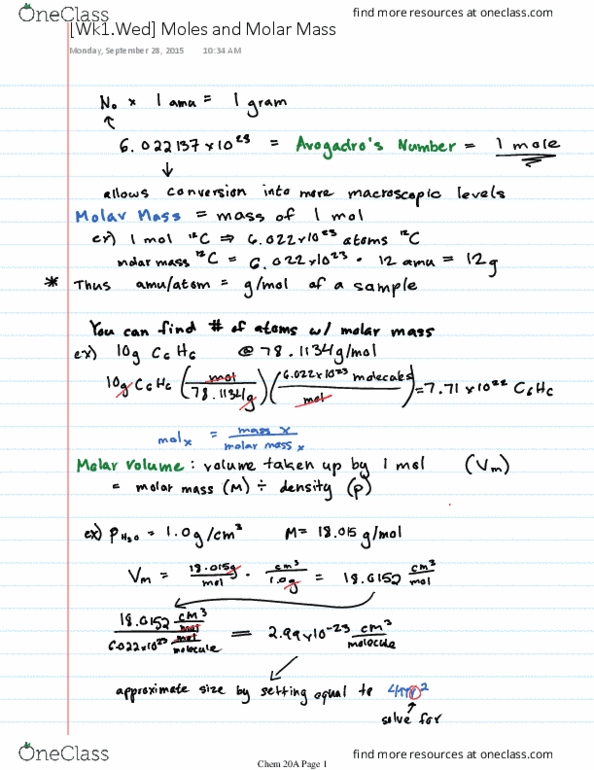 OneClass
find more resources at oneclass.com
[Wk1.Wed] Moles and Molar Mass
Monday, September 28, 2015 10:34 AM
N₀ × 1 amu = 1 gram
↑
6.022137 × 10²³ = Avogadro's Number = 1 mole
↓
allows conversion into more macroscopic levels
Molar Mass = mass of 1 mol
ex) 1 mol ¹²C ⇒ 6.022×10²³ atoms ¹²C
molar mass ¹²C = 6.022×10²³ · 12 amu = 12g
* Thus amu/atom = g/mol of a sample
You can find # of atoms w/ molar mass
ex) 10g C₆H₆ @ 78.1134g/mol
10g C₆H₆ (mol / 78.1134g)(6.022×10²³ molecules / mol) = 7.71 × 10²² C₆H₆
molₓ = mass x / molar mass x
Molar Volume : volume taken up by 1 mol (Vm)
= molar mass (M) ÷ density (ρ)
ex) ρ H₂O = 1.0g/cm³ M = 18.015 g/mol
Vm = 18.015g / mol · cm³ / 1.0g = 18.0152 cm³ / mol
18.0152 cm³ / mol / 6.022×10²³ mol / molecule = 2.99×10⁻²³ cm³ / molecule
approximate size by setting equal to 4πr²
↑
solve for
OneClass
find more resources at oneclass.com
Chem 20A Page 1